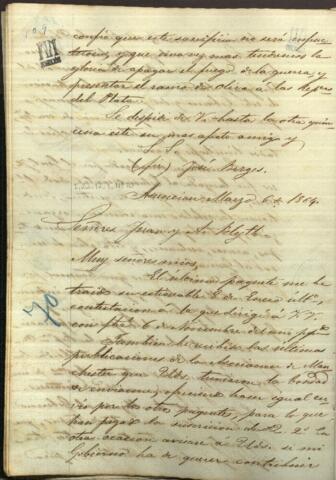 confio que este sacrificio no será infruc
tuoso, y que una vez mas tendremos la
gloria de apagar el fuego de la guerra, y
presentar el ramo de oliva á las Repcas
del Plata.
Se despide de V. hasta la otra quin
cena este su mas afeto amigo y
S. S.
(fir) José Berges.
Asuncion Marzo 6 de 1864.
Señores Juan y A. Blyth.
Muy señores mios,
El último paquete me ha
traido su estimable de Enero ult.
contestacion á la que dirigí á VV.
con fha 6 de Noviembre del año ppdo
Tambien he recibido las ultimas
publicaciones de la de Man
chester que Uds. tuvieron la bondad
de enviarme, y ofrecen hacer igual en
vio por los otros paquetes, para lo que
han pagado la suscricion de £2. 2. La
otra ocasion avisaré á Uds. si mi
Gobierno ha de querer contribuir
70